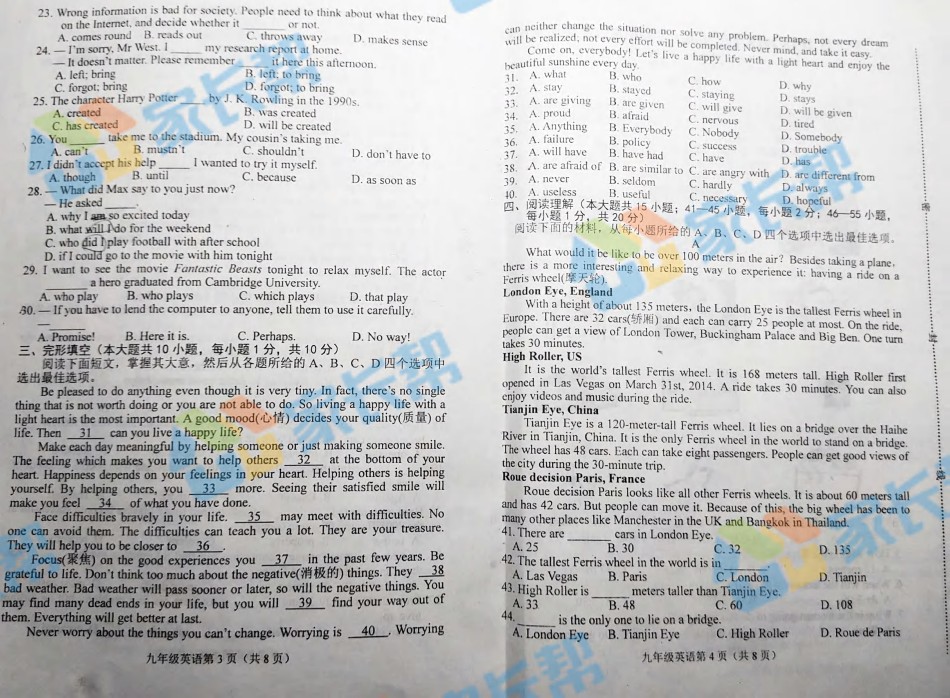 23. Wrong information is bad for society. People need to think about what they read
on the Internet, and decide whether it ______ or not.
A. comes round B. reads out C. throws away D. makes sense
24. — I'm sorry, Mr West. I ______ my research report at home.
— It doesn't matter. Please remember ______ it here this afternoon.
A. left; bring B. left; to bring
C. forgot; bring D. forgot; to bring
25. The character Harry Potter ______ by J. K. Rowling in the 1990s.
A. created B. was created
C. has created D. will be created
26. You ______ take me to the stadium. My cousin's taking me.
A. can't B. mustn't C. shouldn't D. don't have to
27. I didn't accept his help ______ I wanted to try it myself.
A. though B. until C. because D. as soon as
28. — What did Max say to you just now?
— He asked ______.
A. why I am so excited today
B. what will I do for the weekend
C. who did I play football with after school
D. if I could go to the movie with him tonight
29. I want to see the movie Fantastic Beasts tonight to relax myself. The actor
______ a hero graduated from Cambridge University.
A. who play B. who plays C. which plays D. that play
30. — If you have to lend the computer to anyone, tell them to use it carefully.
— ______
A. Promise! B. Here it is. C. Perhaps. D. No way!
三、完形填空（本大题共 10 小题，每小题 1 分，共 10 分）
阅读下面短文，掌握其大意，然后从各题所给的 A、B、C、D 四个选项中
选出最佳选项。
Be pleased to do anything even though it is very tiny. In fact, there's no single
thing that is not worth doing or you are not able to do. So living a happy life with a
light heart is the most important. A good mood(心情) decides your quality(质量) of
life. Then 31 can you live a happy life?
Make each day meaningful by helping someone or just making someone smile.
The feeling which makes you want to help others 32 at the bottom of your
heart. Happiness depends on your feelings in your heart. Helping others is helping
yourself. By helping others, you 33 more. Seeing their satisfied smile will
make you feel 34 of what you have done.
Face difficulties bravely in your life. 35 may meet with difficulties. No
one can avoid them. The difficulties can teach you a lot. They are your treasure.
They will help you to be closer to 36 .
Focus(聚焦) on the good experiences you 37 in the past few years. Be
grateful to life. Don't think too much about the negative(消极的) things. They 38
bad weather. Bad weather will pass sooner or later, so will the negative things. You
may find many dead ends in your life, but you will 39 find your way out of
them. Everything will get better at last.
Never worry about the things you can't change. Worrying is 40 . Worrying
九年级英语第 3 页（共 8 页）
can neither change the situation nor solve any problem. Perhaps, not every dream
will be realized; not every effort will be completed. Never mind, and take it easy.
Come on, everybody! Let's live a happy life with a light heart and enjoy the
beautiful sunshine every day.
31. A. what B. who C. how D. why
32. A. stay B. stayed C. staying D. stays
33. A. are giving B. are given C. will give D. will be given
34. A. proud B. afraid C. nervous D. tired
35. A. Anything B. Everybody C. Nobody D. Somebody
36. A. failure B. policy C. success D. trouble
37. A. will have B. have had C. have D. has
38. A. are afraid of B. are similar to C. are angry with D. are different from
39. A. never B. seldom C. hardly D. always
40. A. useless B. useful C. necessary D. hopeful
四、阅读理解（本大题共 15 小题；41—45 小题，每小题 2 分；46—55 小题，
每小题 1 分，共 20 分）
阅读下面的材料，从每小题所给的 A、B、C、D 四个选项中选出最佳选项。
A
What would it be like to be over 100 meters in the air? Besides taking a plane,
there is a more interesting and relaxing way to experience it: having a ride on a
Ferris wheel(摩天轮).
London Eye, England
With a height of about 135 meters, the London Eye is the tallest Ferris wheel in
Europe. There are 32 cars(轿厢) and each can carry 25 people at most. On the ride,
people can get a view of London Tower, Buckingham Palace and Big Ben. One turn
takes 30 minutes.
High Roller, US
It is the world's tallest Ferris wheel. It is 168 meters tall. High Roller first
opened in Las Vegas on March 31st, 2014. A ride takes 30 minutes. You can also
enjoy videos and music during the ride.
Tianjin Eye, China
Tianjin Eye is a 120-meter-tall Ferris wheel. It lies on a bridge over the Haihe
River in Tianjin, China. It is the only Ferris wheel in the world to stand on a bridge.
The wheel has 48 cars. Each can take eight passengers. People can get good views of
the city during the 30-minute trip.
Roue decision Paris, France
Roue decision Paris looks like all other Ferris wheels. It is about 60 meters tall
and has 42 cars. But people can move it. Because of this, the big wheel has been to
many other places like Manchester in the UK and Bangkok in Thailand.
41. There are ______ cars in London Eye.
A. 25 B. 30 C. 32 D. 135
42. The tallest Ferris wheel in the world is in ______.
A. Las Vegas B. Paris C. London D. Tianjin
43. High Roller is ______ meters taller than Tianjin Eye.
A. 33 B. 48 C. 60 D. 108
44. ______ is the only one to lie on a bridge.
A. London Eye B. Tianjin Eye C. High Roller D. Roue de Paris
九年级英语第 4 页（共 8 页）
家长帮
家长帮
家长帮
家长帮